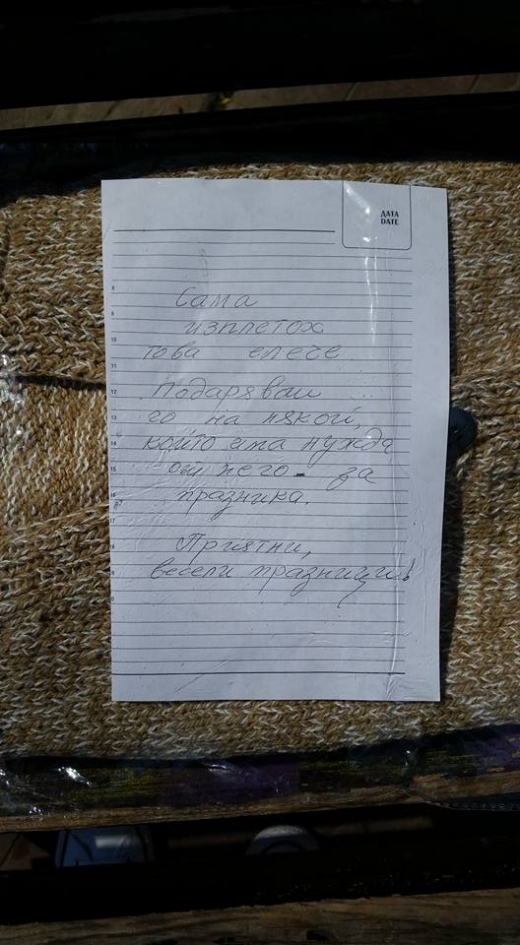 ДАТА
DATE
8
9
10
11
12
13
14
15
16
17
Сама
изплетох
това елече
Подарявам
го на някой,
който има нужда
от него - за
празника.
Приятни,
весели празници!